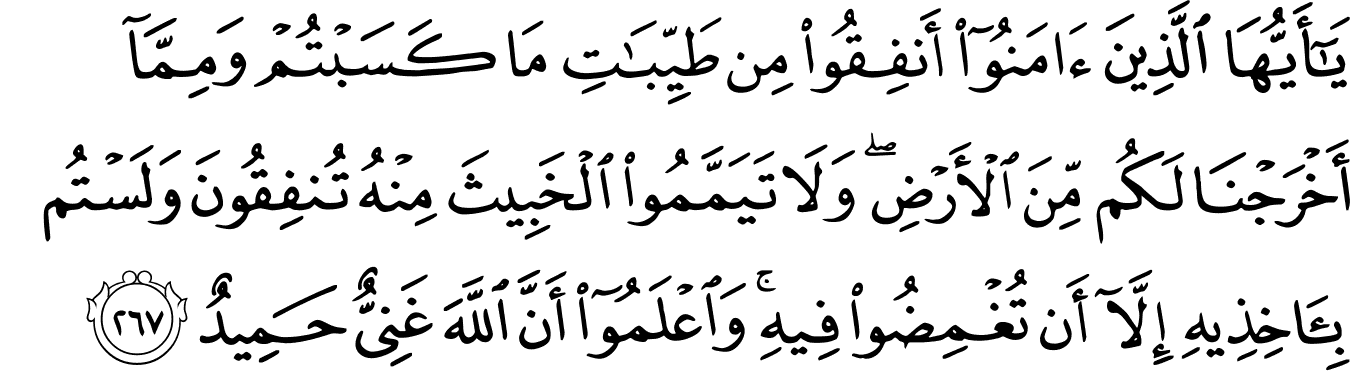 يَٰٓأَيُّهَا ٱلَّذِينَ ءَامَنُوٓا۟ أَنفِقُوا۟ مِن طَيِّبَٰتِ مَا كَسَبْتُمْ وَمِمَّآ
أَخْرَجْنَا لَكُم مِّنَ ٱلْأَرْضِ ۖ وَلَا تَيَمَّمُوا۟ ٱلْخَبِيثَ مِنْهُ تُنفِقُونَ وَلَسْتُم
بِـَٔاخِذِيهِ إِلَّآ أَن تُغْمِضُوا۟ فِيهِ ۚ وَٱعْلَمُوٓا۟ أَنَّ ٱللَّهَ غَنِىٌّ حَمِيدٌ ٢٦٧